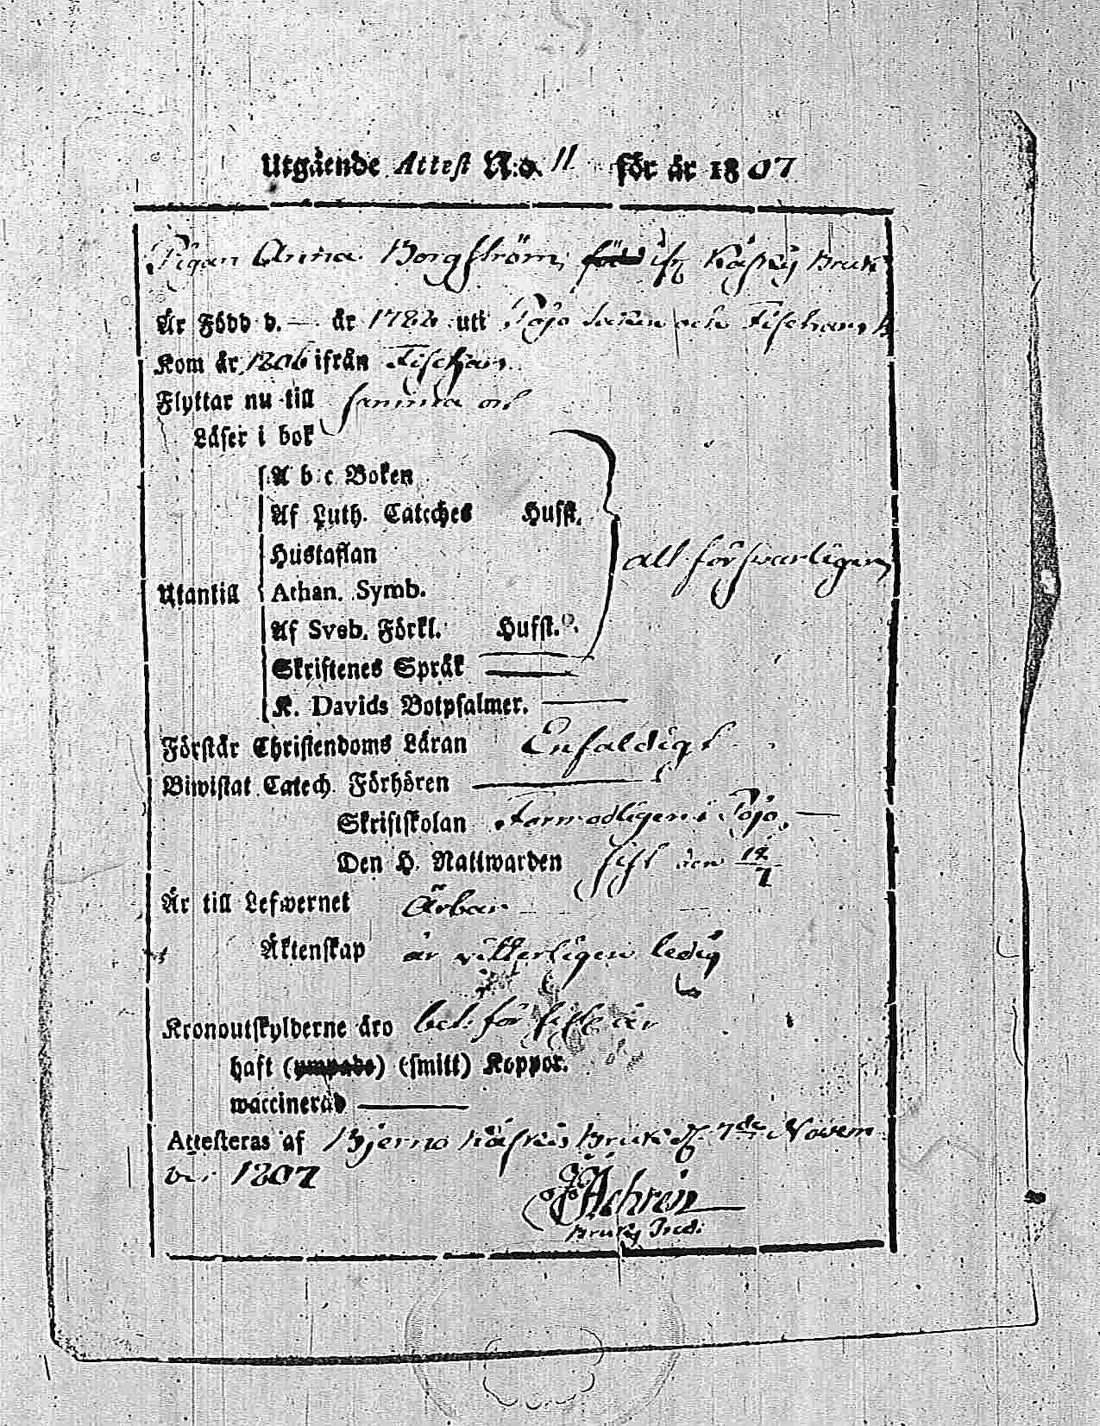 Utgående Attest N:o. 11 för år 1807
Pigan Anna Borgström, ifr. Koskis Bruk
Är Född d. — år 178 uti Pojo Socken och Fiskars
Kom år 1806 ifrån Fiskars
Flyttar nu till samma ort
Läser i bok
A b c Boken
Af Luth. Catches Husfl.
Hustaflan
allt förswarligen
Utantill Athan. Symb.
Af Sveb. Förkl. Husfl.
Skriftenes Språk
K. Davids Botpsalmer. —
Förstår Christendoms Läran Enfaldigt
Biwistat Catech. Förhören —
Skriftskolan Formodligen i Pojo, —
Den H. Nattwarden sist den 12/7
Är till Lefwernet Ärbar
Äktenskap är vitterligen ledig
Kronoutskylderne äro bet. för sistl. år
haft (ympade) (smitt) Koppor.
waccinerad —
Attesteras af Bjerno Koskis Bruk d. 7de Novem-
ber 1807
Bruks Pred: